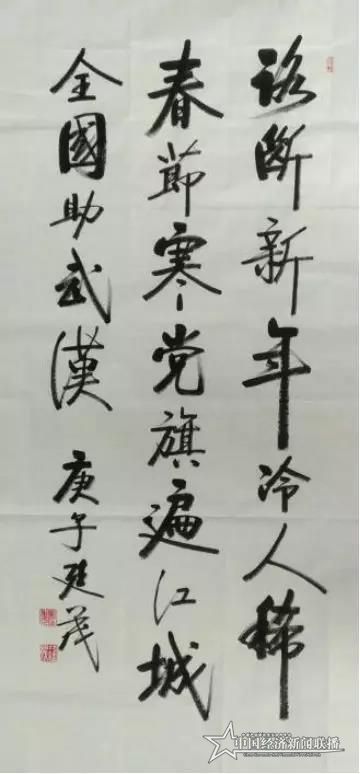 路断新年冷人稀
春節寒党旗遍江城
全國助武漢 庚子廷茂
中国经济新闻联播